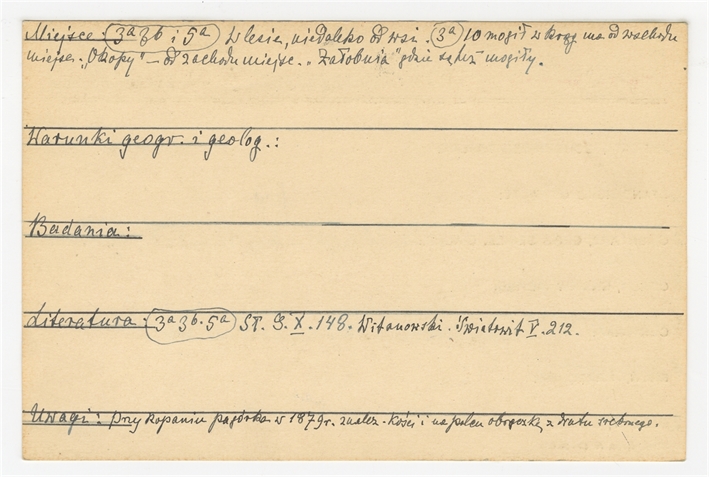 Miejsce: 3ª 3ᵇ i 5ª W lesie, niedaleko od wsi. 3ª 10 mogił w krąg ma od wschodu
miejsc. „Okopy" — od zachodu miejsc. „Żałobnia" gdzie są też mogiły.
Warunki geogr. i geolog.:
Badania:
Literatura: 3ª 3ᵇ. 5ª St. G. X. 148. Witanowski. Światowit V. 212.
Uwagi: przy kopaniu pagórka w 1879 r. znalez. kości i na palcu obrączkę z drutu srebrnego.